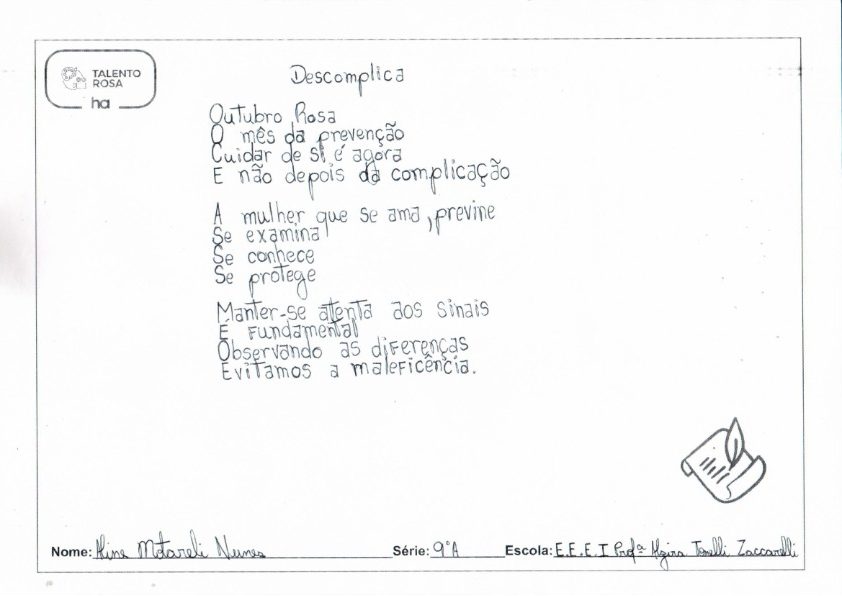 TALENTO
ROSA
ha
Descomplica
Outubro Rosa
O mês da prevenção
Cuidar de si é agora
E não depois da complicação
A mulher que se ama, previne
Se examina
Se conhece
Se protege
Manter-se atenta aos sinais
É fundamental
Observando as diferenças
Evitamos a maleficência.
Nome: Aline Motareli Nunes Série: 9ºA Escola: E.E.E.I Profª Alzira Tonelli Zaccarelli